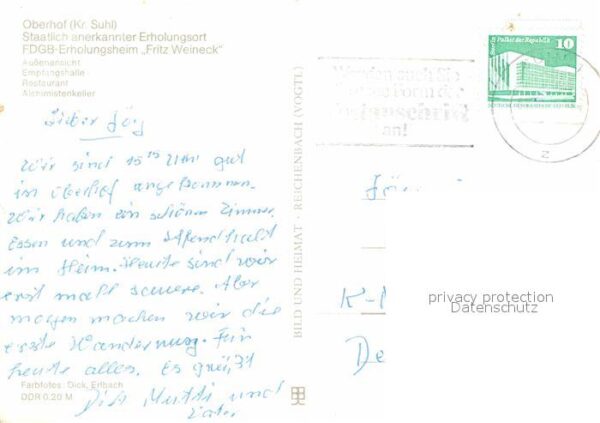 Oberhof (Kr. Suhl)
Staatlich anerkannter Erholungsort
FDGB-Erholungsheim „Fritz Weineck"
Außenansicht
Empfangshalle
Restaurant
Alchimistenkeller
Lieber Jörg
Wir sind 15 Uhr gut
in Oberhof angekommen.
Wir haben ein schönes Zimmer.
Essen und zum Aufenthalt
im Heim. Heute sind wir
erst mall Aber
morgen machen wir die
erste Wanderung. Für
heute alles. Es grüßt
Dich Mutti und
Vati
Farbfotos: Dick, Erlbach
DDR 0,20 M
BILD UND HEIMAT · REICHENBACH (VOGTL)
Berlin Palast der Republik
10
DEUTSCHE DEMOKRATISCHE REPUBLIK
Wenden auch Sie
Form der
Postanschrift
an!
z
K-
De
privacy protection
Datenschutz